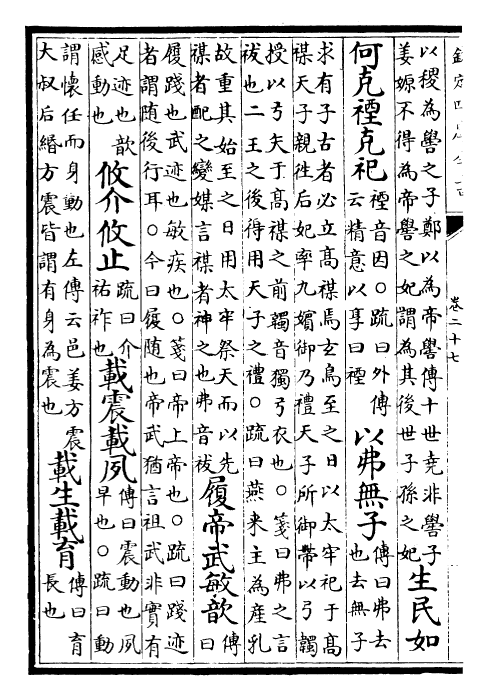 卷二十七
以稷為嚳之子鄭以為帝嚳傳十世堯非嚳子
姜嫄不得為帝嚳之妃謂為其後世子孫之妃
生民如
何克禋克祀
禋音因○疏曰外傳
云精意以享曰禋
以弗無子
傳曰弗去
也去無子
求有子古者必立髙禖焉𤣥鳥至之日以太牢祀于髙
禖天子親徃后妃率九嬪御乃禮天子所御帶以弓韣
授以弓矢于髙禖之前韣音獨弓衣也○箋曰弗之言
祓也二王之後得用天子之禮○疏曰燕来主為産乳
故重其始至之日用太牢祭天而以先
禖者配之變媒言禖者神之也弗音祓
履帝武敏歆
傳
曰
履踐也武迹也敏疾也○箋曰帝上帝也○疏曰踐迹
者謂随後行耳○今曰履随也帝武猶言祖武非實有
足迹也歆
感動也
攸介攸止
疏曰介
祐祚也
載震載夙
傳曰震動也夙
早也○疏曰動
謂懷任而身動也左傳云邑姜方震
大叔后緡方震皆謂有身為震也
載生載育
傳曰育
長也